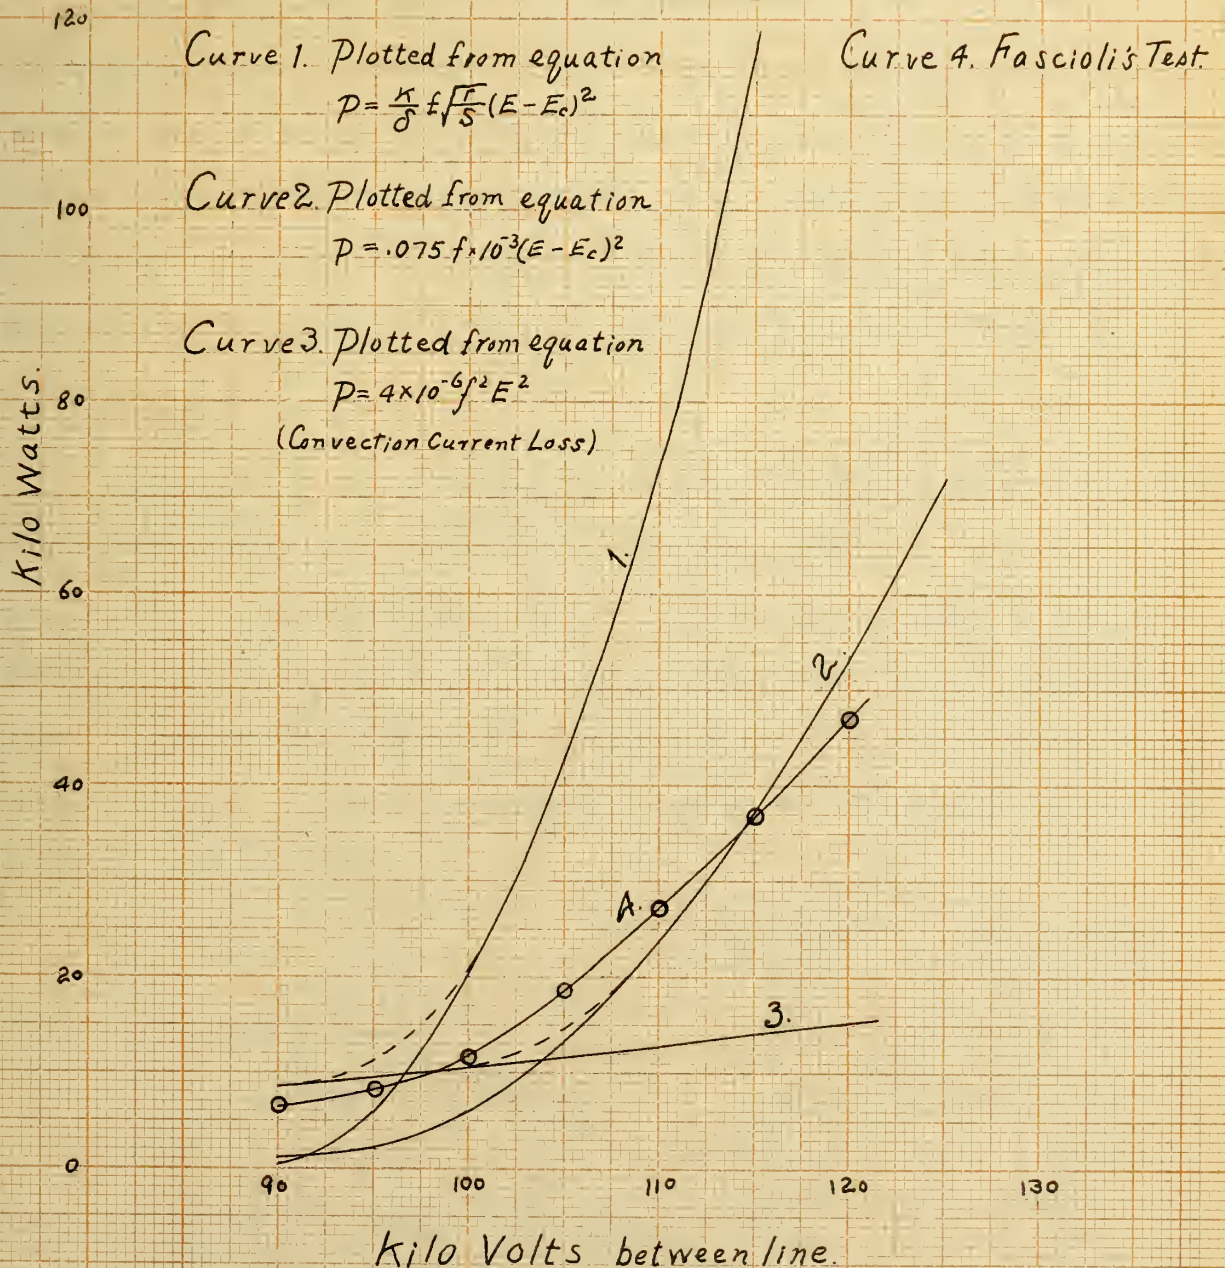 Curve 1. Plotted from equation
P = K/δ f√r/S (E - Ec)²
Curve 2. Plotted from equation
P = .075 f×10⁻³(E - Ec)²
Curve 3. Plotted from equation
P = 4×10⁻⁶f²E²
(Convection Current Loss)
Curve 4. Fascioli's Test.
Kilo Watts.
120
100
80
60
40
20
0
1.
2.
4.
3.
90 100 110 120 130
Kilo Volts between line.